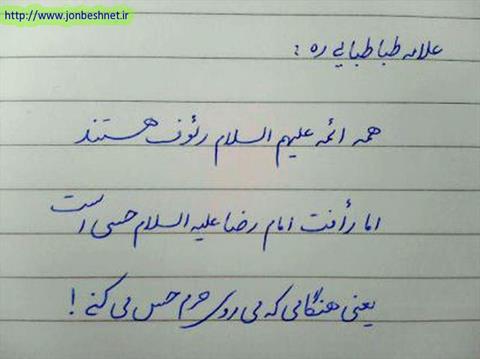 http://www.jonbeshnet.ir
علامه طباطبایی ره :
همه ائمه علیهم السلام رئوف هستند
اما رأفت امام رضا علیه السلام حسی است
یعنی هنگامی که می روی حرم حس می کنی !